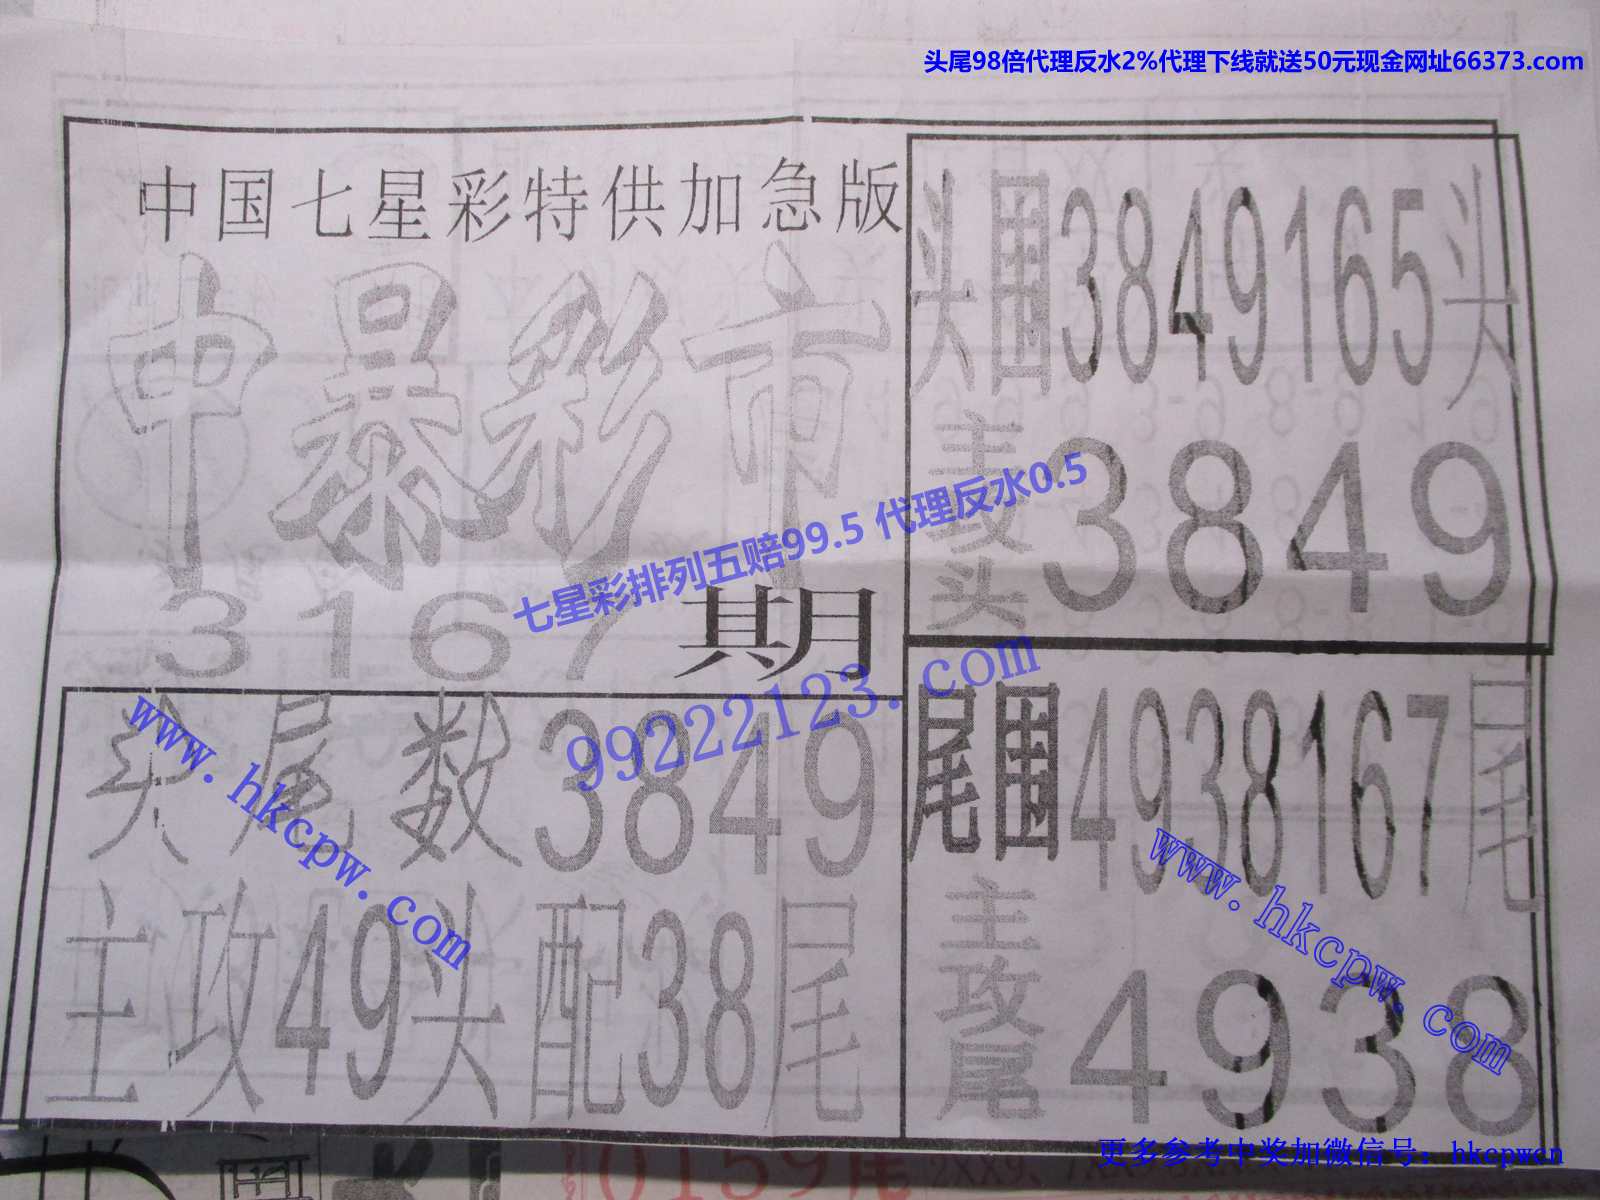 头尾98倍代理反水2%代理下线就送50元现金网址66373.com
中国七星彩特供加急版
中暴彩市
3167期
头尾数3849
主攻49头配38尾
头围3849165头
主攻头3849
尾围4938167尾
主攻尾4938
七星彩排列五赔99.5 代理反水0.5
99222123.com
www.hkcpw.com
www.hkcpw.com
更多参考中奖加微信号：hkcpwcn
0159尾